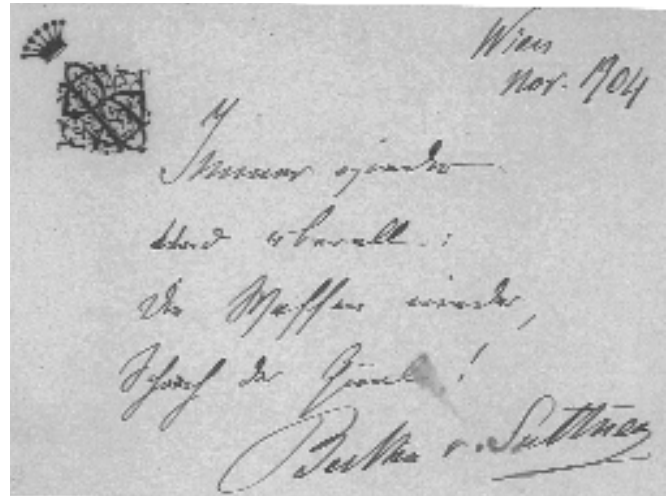 Wien
Nov. 1904
Immer wieder
Und überall:
Die Waffen nieder,
Schach der !
Bertha v. Suttner